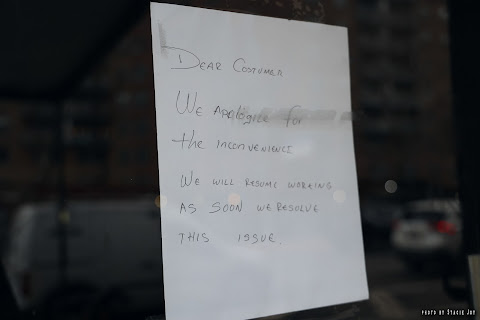 Dear Costumer
We apologize for
the inconvenience
We will resume working
as soon we resolve
this issue.
PHOTO BY STACIE JOY